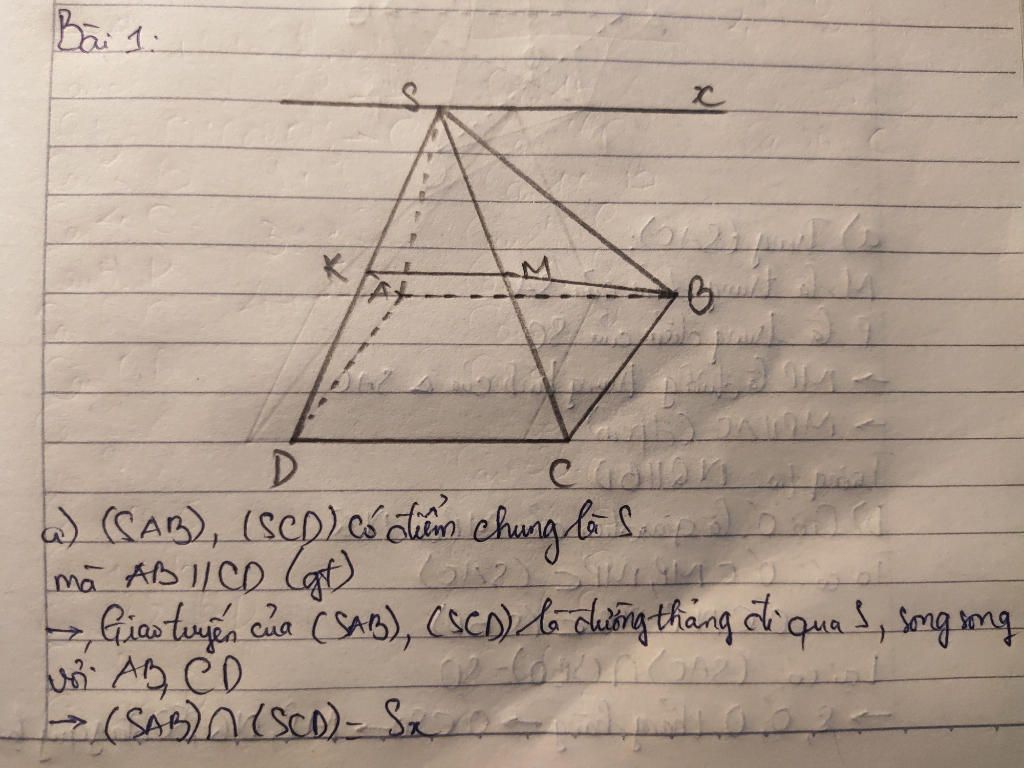 Bài 1:
S x
K M
A B
D C
a) (SAB), (SCD) có điểm chung là S
mà AB // CD (gt)
→ Giao tuyến của (SAB), (SCD) là đường thẳng đi qua S, song song
với AB, CD
→ (SAB) ∩ (SCD) = Sx